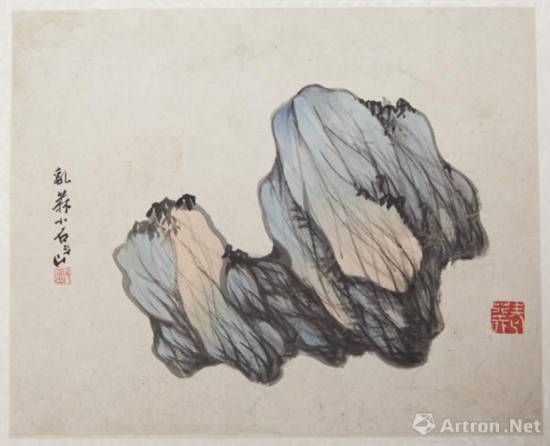 亂蔴小石斗山
Artron.Net